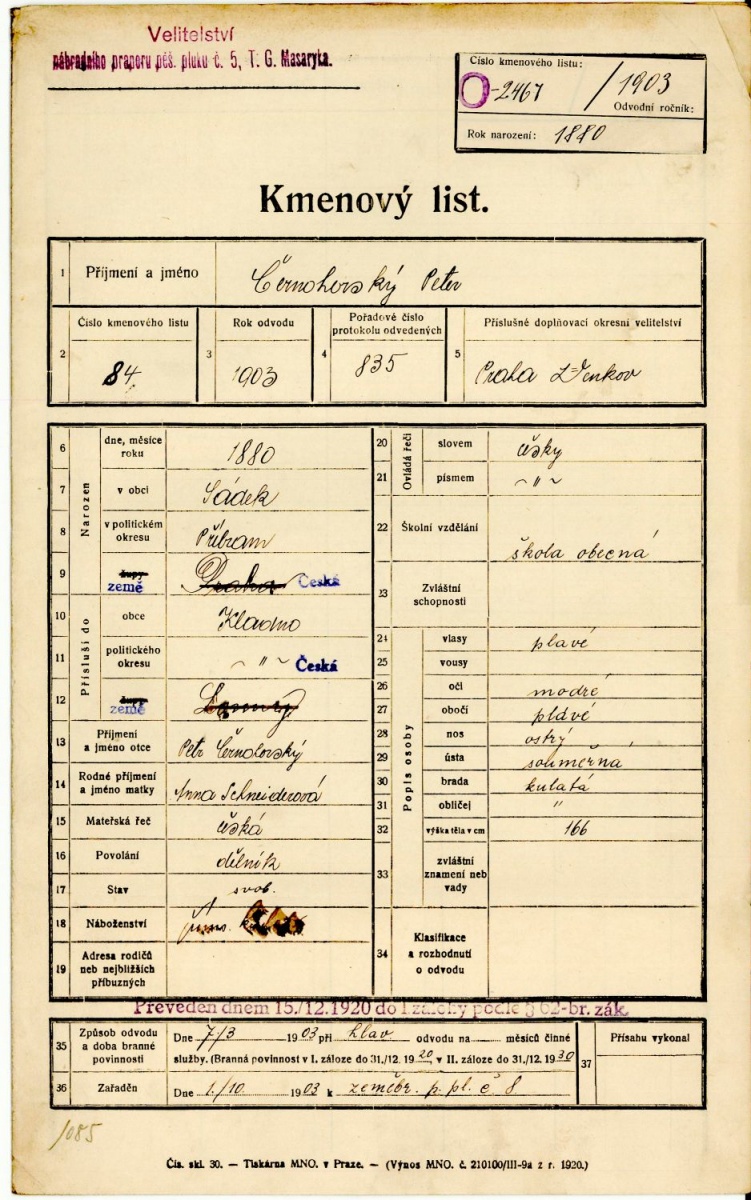 Velitelství
náhradního praporu pěš. pluku č. 5, T. G. Masaryka.
Číslo kmenového listu:
O-2467 / 1903
Odvodní ročník:
Rok narození: 1880
Kmenový list.
1 Příjmení a jméno Černohorský Peter
2 Číslo kmenového listu 84
3 Rok odvodu 1903
4 Pořadové číslo protokolu odvedených 835
5 Příslušné doplňovací okresní velitelství Praha Venkov
Narozen
6 dne, měsíce roku 1880
7 v obci Sádek
8 v politickém okresu Příbram
9 župy země Praha Česká
Přísluší do
10 obce Kladno
11 politického okresu ~ " ~ Česká
12 župy země
13 Příjmení a jméno otce Petr Černohorský
14 Rodné příjmení a jméno matky Anna Schneiderová
15 Mateřská řeč česká
16 Povolání dělník
17 Stav svob.
18 Náboženství
19 Adresa rodičů neb nejbližších příbuzných
Ovládá řeči
20 slovem česky
21 písmem ~ " ~
22 Školní vzdělání škola obecná
23 Zvláštní schopnosti
Popis osoby
24 vlasy plavé
25 vousy
26 oči modré
27 obočí plavé
28 nos ostrý
29 ústa souměrná
30 brada kulatá
31 obličej "
32 výška těla v cm 166
33 zvláštní znamení neb vady
34 Klasifikace a rozhodnutí o odvodu
Převeden dnem 15./12.1920 do I zálohy podle § 62-br. zák.
35 Způsob odvodu a doba branné povinnosti
Dne 7/3 1903 při hlav odvodu na měsíců činné
služby. (Branná povinnost v I. záloze do 31./12. 1920 v II. záloze do 31./12. 1930
36 Zařaděn Dne 1./10 1903 k zeměbr. p. pl. č 8
37 Přísahu vykonal
1085
Čís. skl. 30. — Tiskárna MNO. v Praze. — (Výnos MNO. č. 210100/III-9a z r. 1920.)